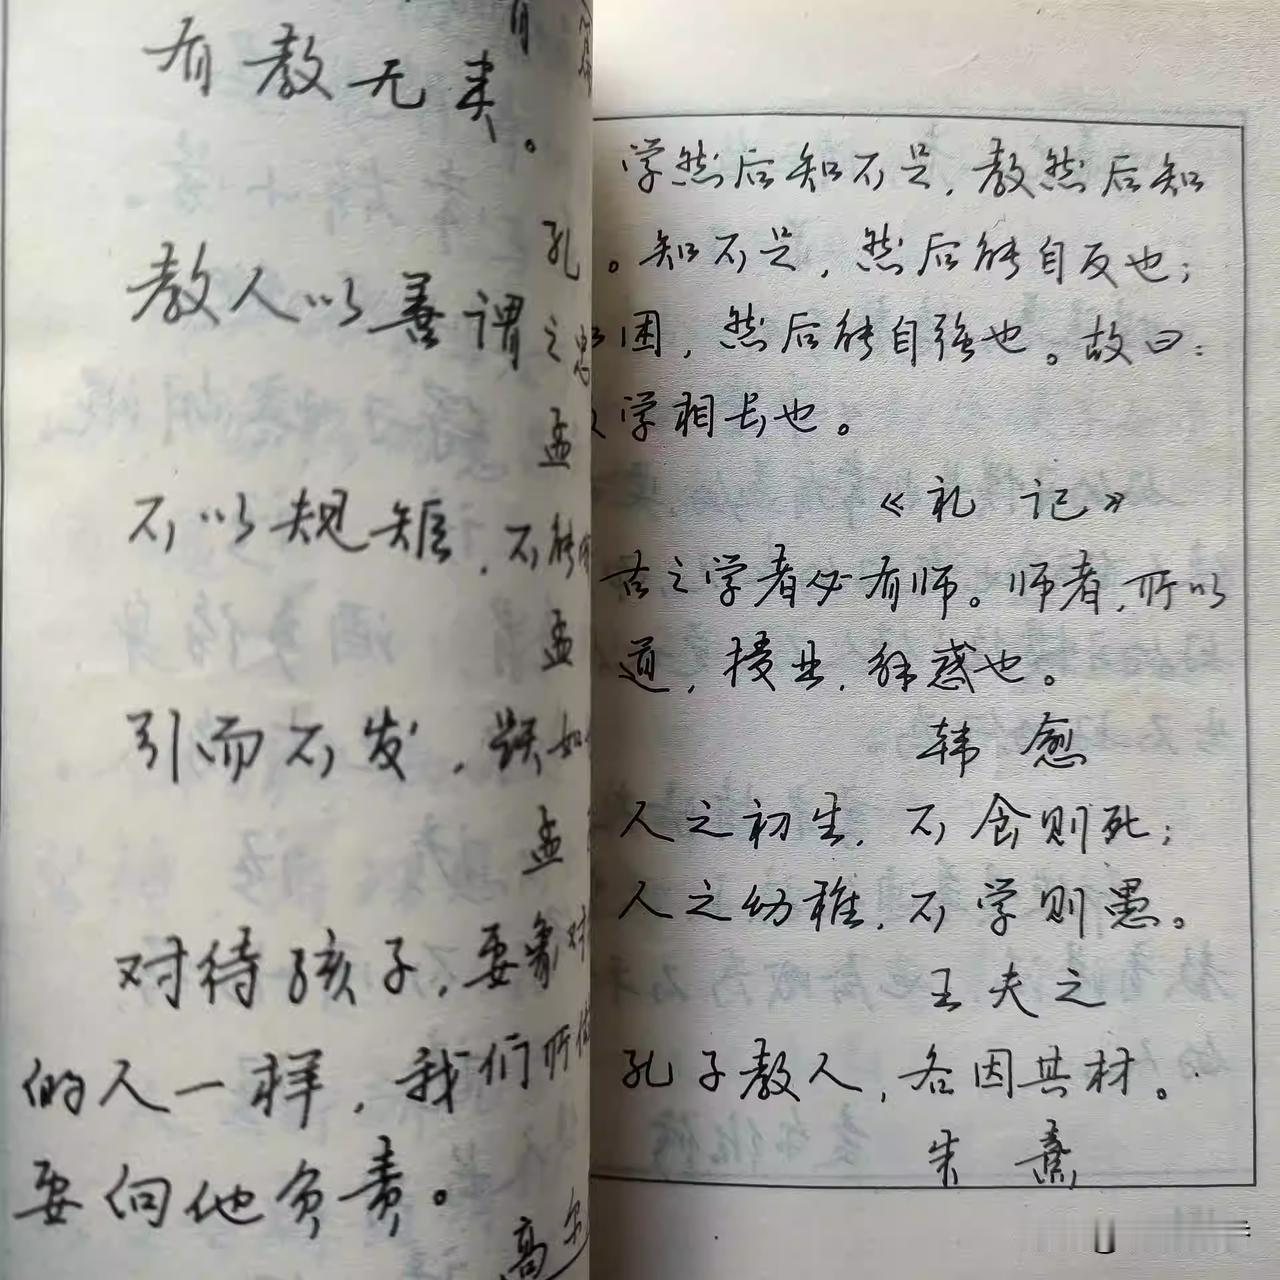 有教无类。
孔
教人以善谓之忠
孟
不以规矩，不能
孟
引而不发，跃如
孟
对待孩子，要象对
的人一样，我们所
要向他负责。
高尔
学然后知不足，教然后知
。知不足，然后能自反也；
困，然后能自强也。故曰：
学相长也。
《礼 记》
古之学者必有师。师者，所以
道，授业，解惑也。
韩 愈
人之初生，不食则死；
人之幼稚，不学则愚。
王夫之
孔子教人，各因其材。
朱 熹